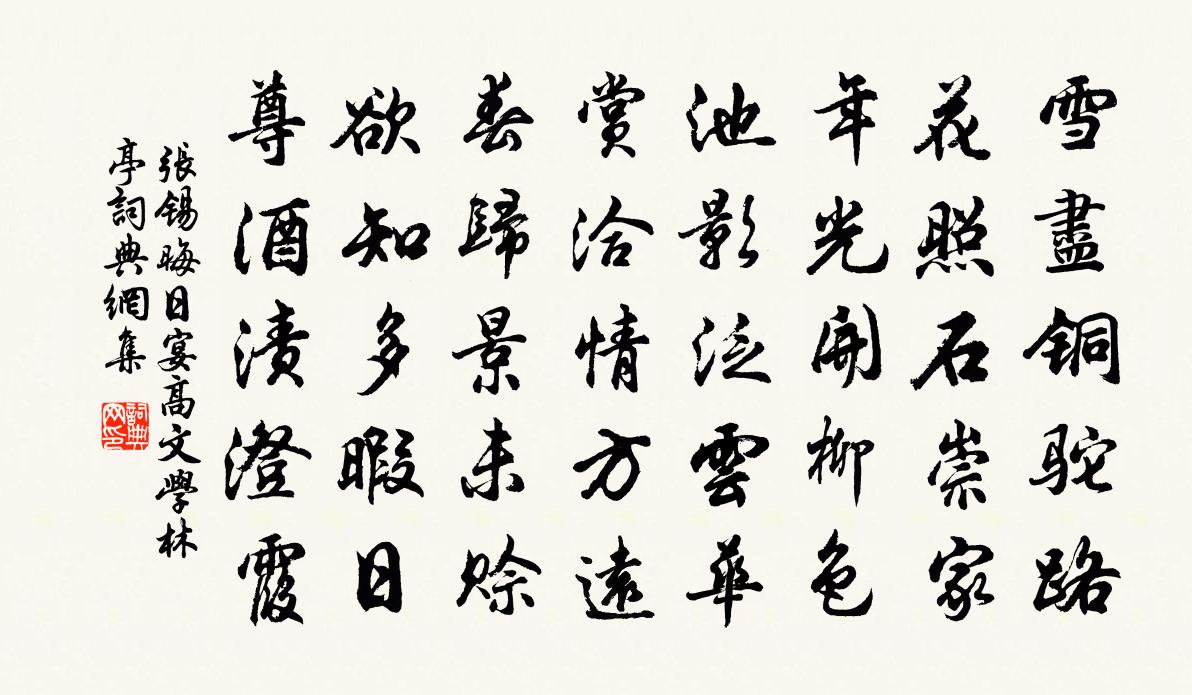 雪盡銅駝路
花照石崇家
年光開柳色
池影泛雲華
賞洽情方遠
春歸景未賒
欲知多暇日
尊酒漬澄霞
張錫晦日宴高文學林
亭詞典網集
詞典网印